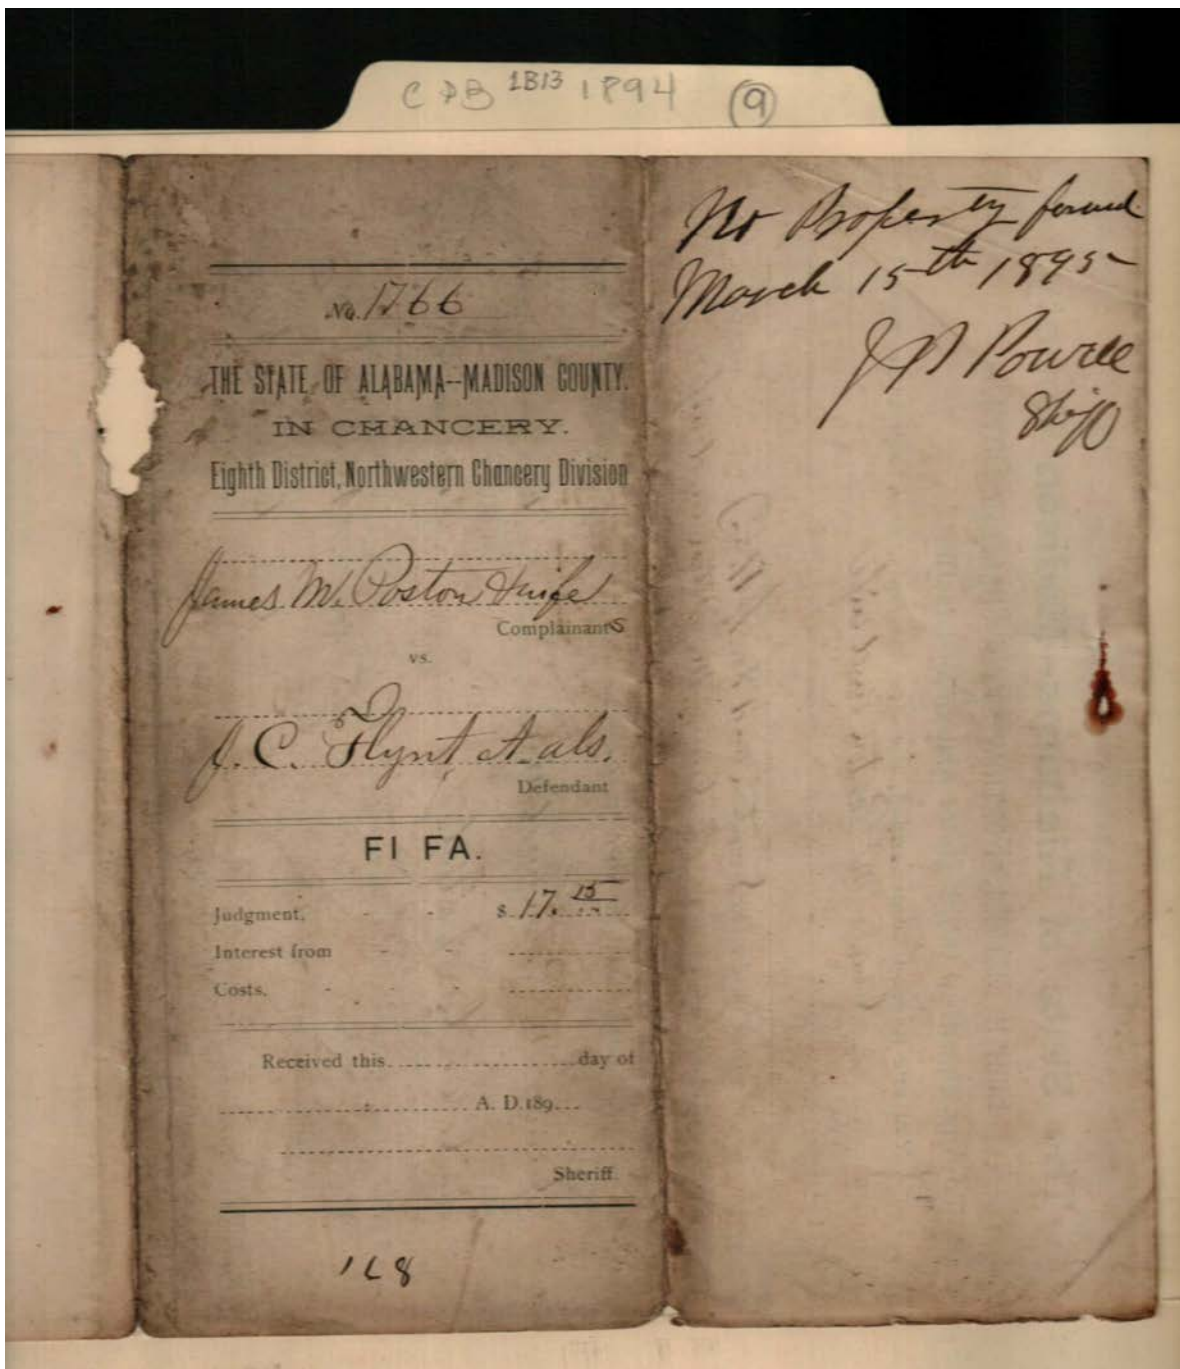 CPB 1B13 1894 9
No. 1266
THE STATE OF ALABAMA--MADISON COUNTY.
IN CHANCERY.
Eighth District, Northwestern Chancery Division
James W. Poston & wife
Complainants
vs.
J. C. Flynt, et. als.
Defendant
FI FA.
Judgment, - - $ 17. 15
Interest from - -
Costs. - - - -
Received this day of
A. D. 189
Sheriff.
168
No Property found
March 15th 1895
Powell
Shff